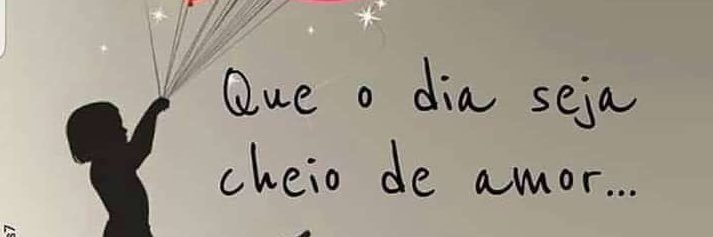 Que o dia seja
cheio de amor...